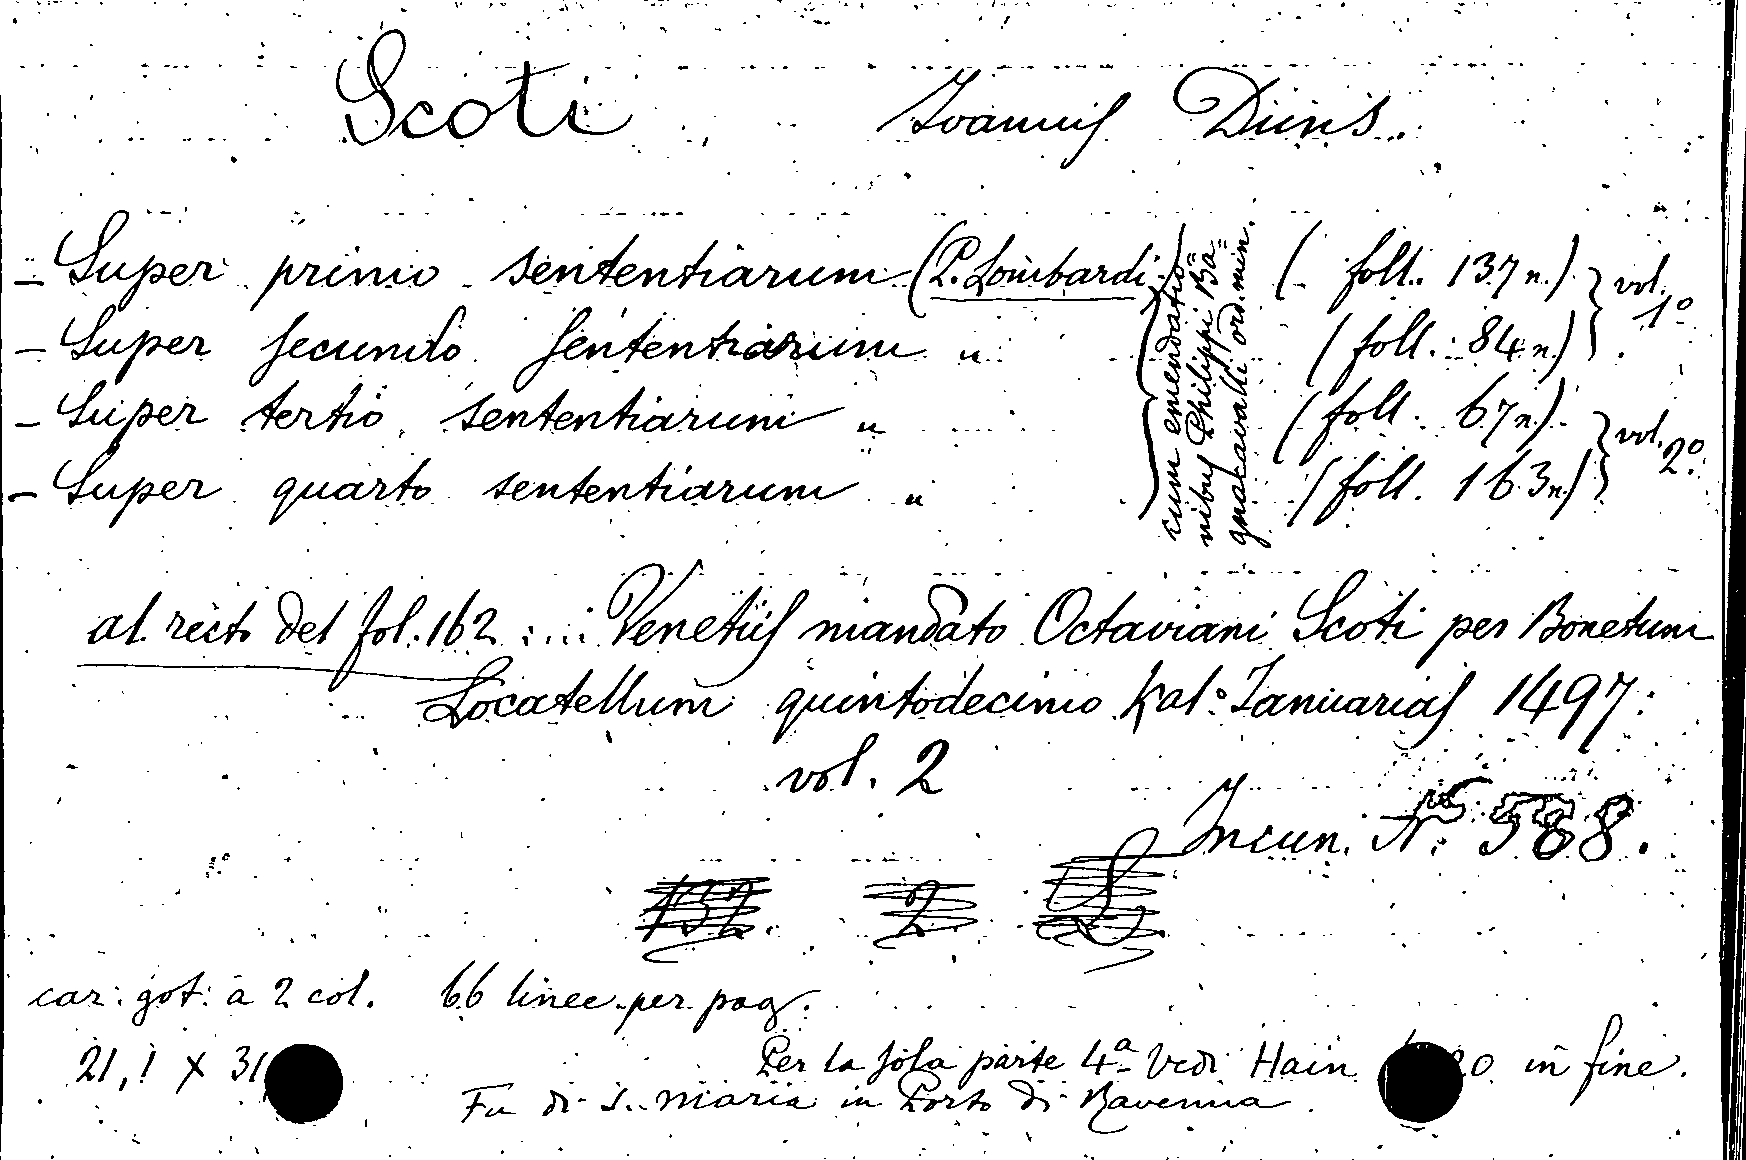 Scoti Ioannis Duns.
- Super primo sententiarum (P. Lombardi) ( foll. 137 n.) vol. 1º
- Super secundo sententiarum " ( foll. 84 n.)
- Super tertio sententiarum " ( foll. 67 n.) vol. 2º
- Super quarto sententiarum " ( foll. 163 n.)
cum emendatio
nibus Philippi Ba=
gnacavalli ord. min.
al recto del fol. 162 : ... Venetiis mandato Octaviani Scoti per Bonetum
Locatellum quintodecimo Kal. Ianuarias 1497.
vol. 2
Incun. Nº 588.
132. 2
car. got. a 2 col. 66 linee per pag.
21,1 X 31,
Per la sola parte 4ª Vedi Hain 20 in fine.
Fu di S. Maria in Porto di Ravenna.